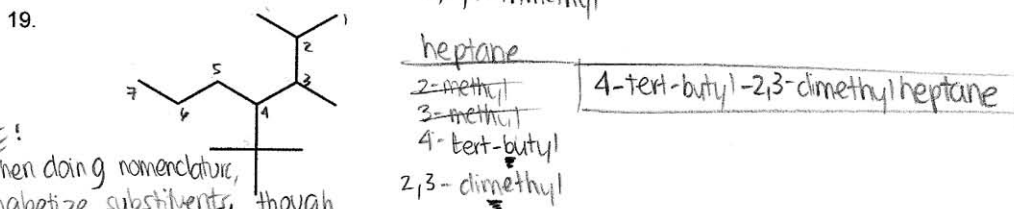 19.
1
2
3
4
5
6
7
heptane
2-methyl
3-methyl
4-tert-butyl
2,3-dimethyl
4-tert-butyl-2,3-dimethylheptane
hen doing nomenclature,
habetize substituents, though